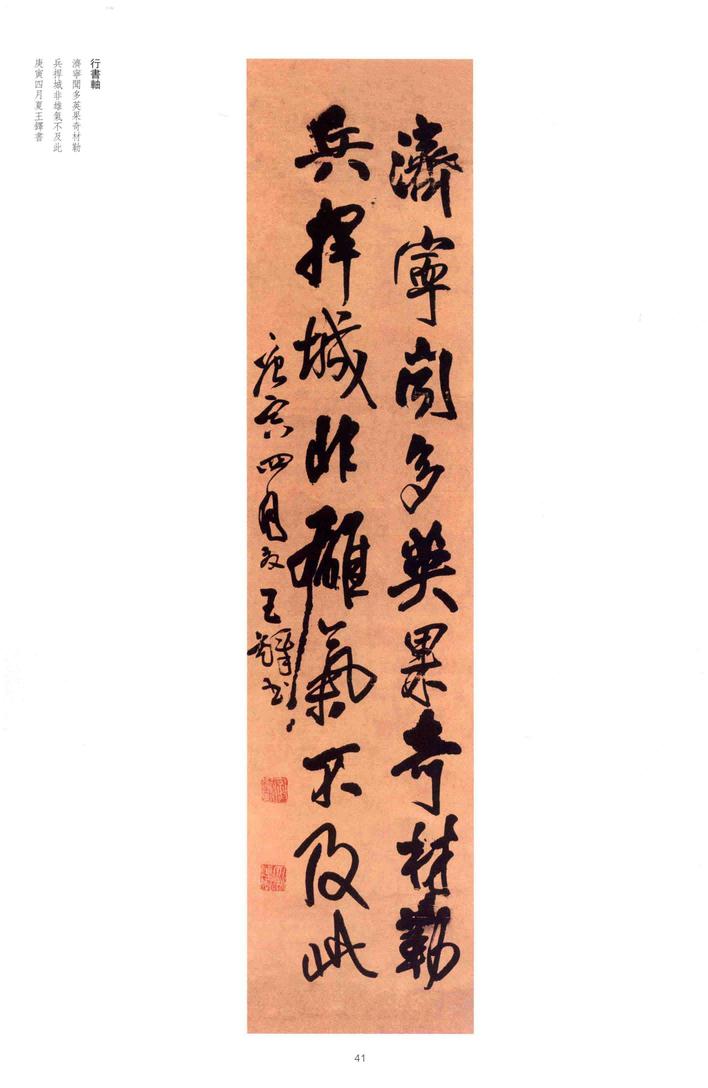 行書軸
濟寧聞多英果奇材勒
兵捍城非雄氣不及此
庚寅四月夏王鐸書
濟寧聞多英果奇材勒
兵捍城非雄氣不及此
庚寅四月夏王鐸書
41